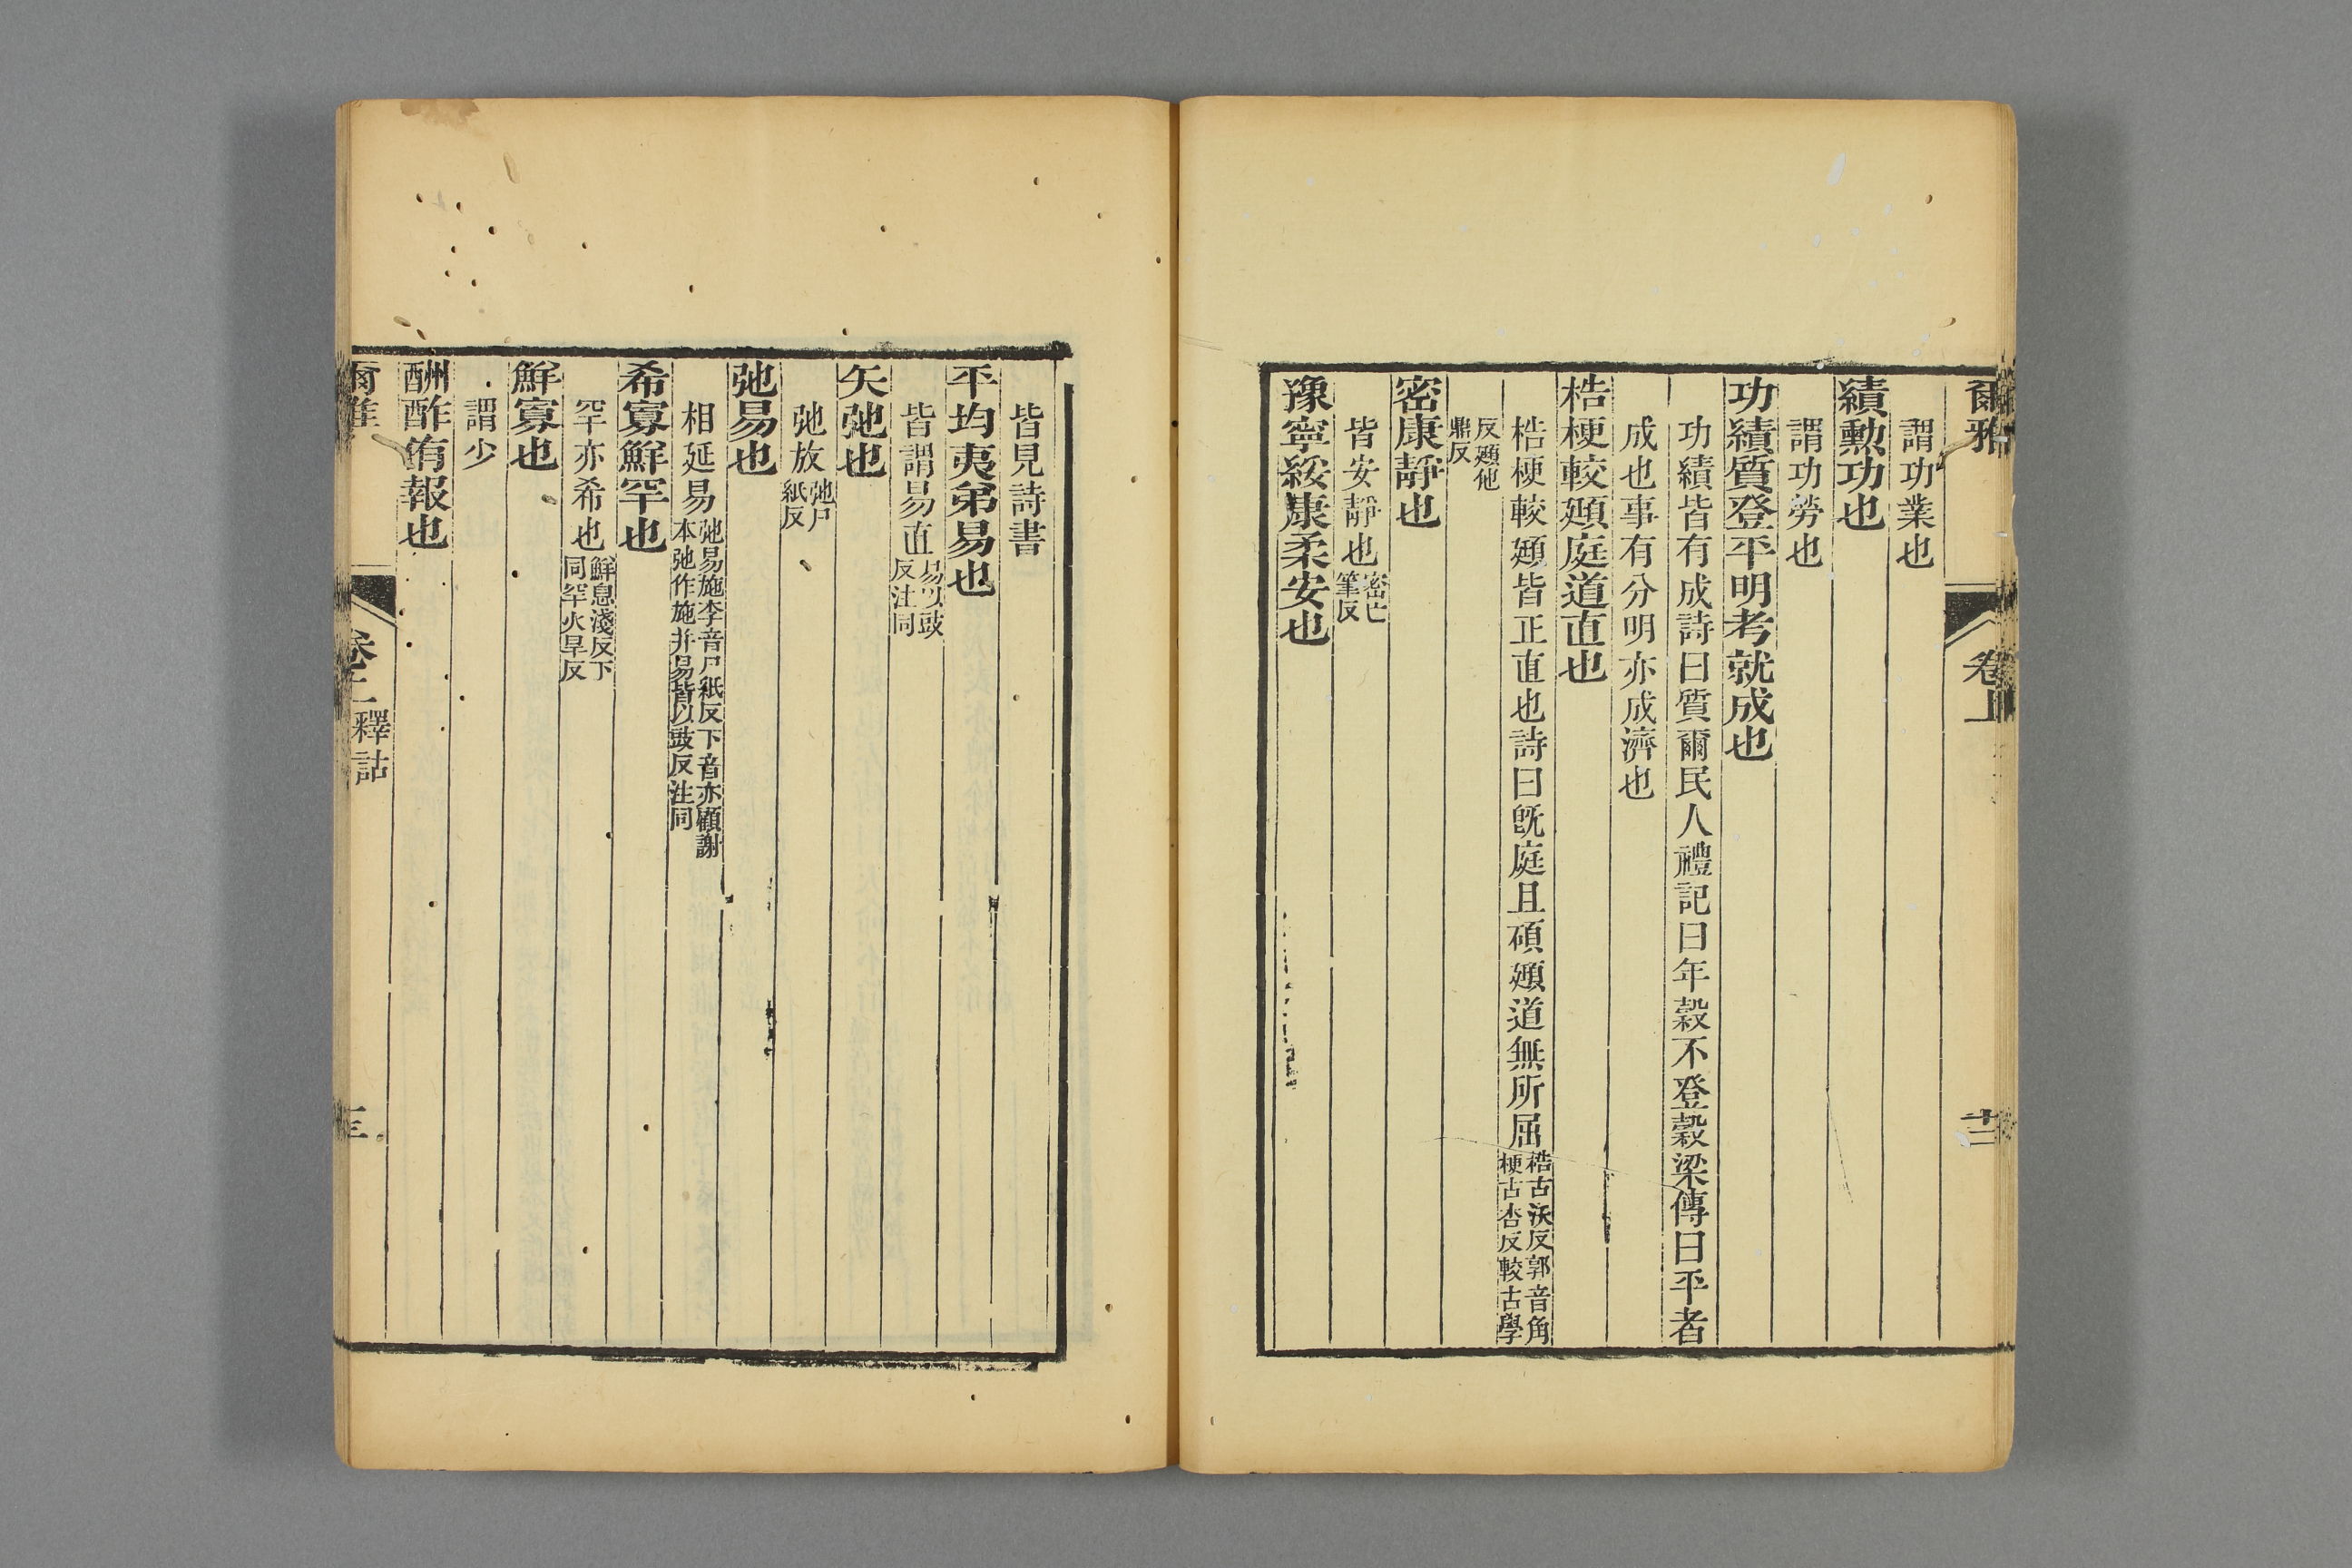 爾雅 卷上 十二
謂功業也
績勲功也
謂功勞也
功績質登平明考就成也
功績皆有成詩曰質爾民人禮記曰年穀不登穀梁傳曰平者
成也事有分明亦成濟也
梏梗較頲庭道直也
梏梗較頲皆正直也詩曰旣庭且碩頲道無所屈梏古沃反郭音角梗古杏反較古學
反頲他鼎反
密康靜也
皆安靜也密亡筆反
豫寧綏康柔安也
皆見詩書
平均夷弟易也
皆謂易直易以豉反注同
矢弛也
弛放弛尸紙反
弛易也
相延易弛易施李音尸紙反下音亦顧謝本弛作施并易皆以豉反注同
希寡鮮罕也
罕亦希也鮮息淺反下同罕火旱反
鮮寡也
謂少
酬酢侑報也
爾雅 卷上 釋詁